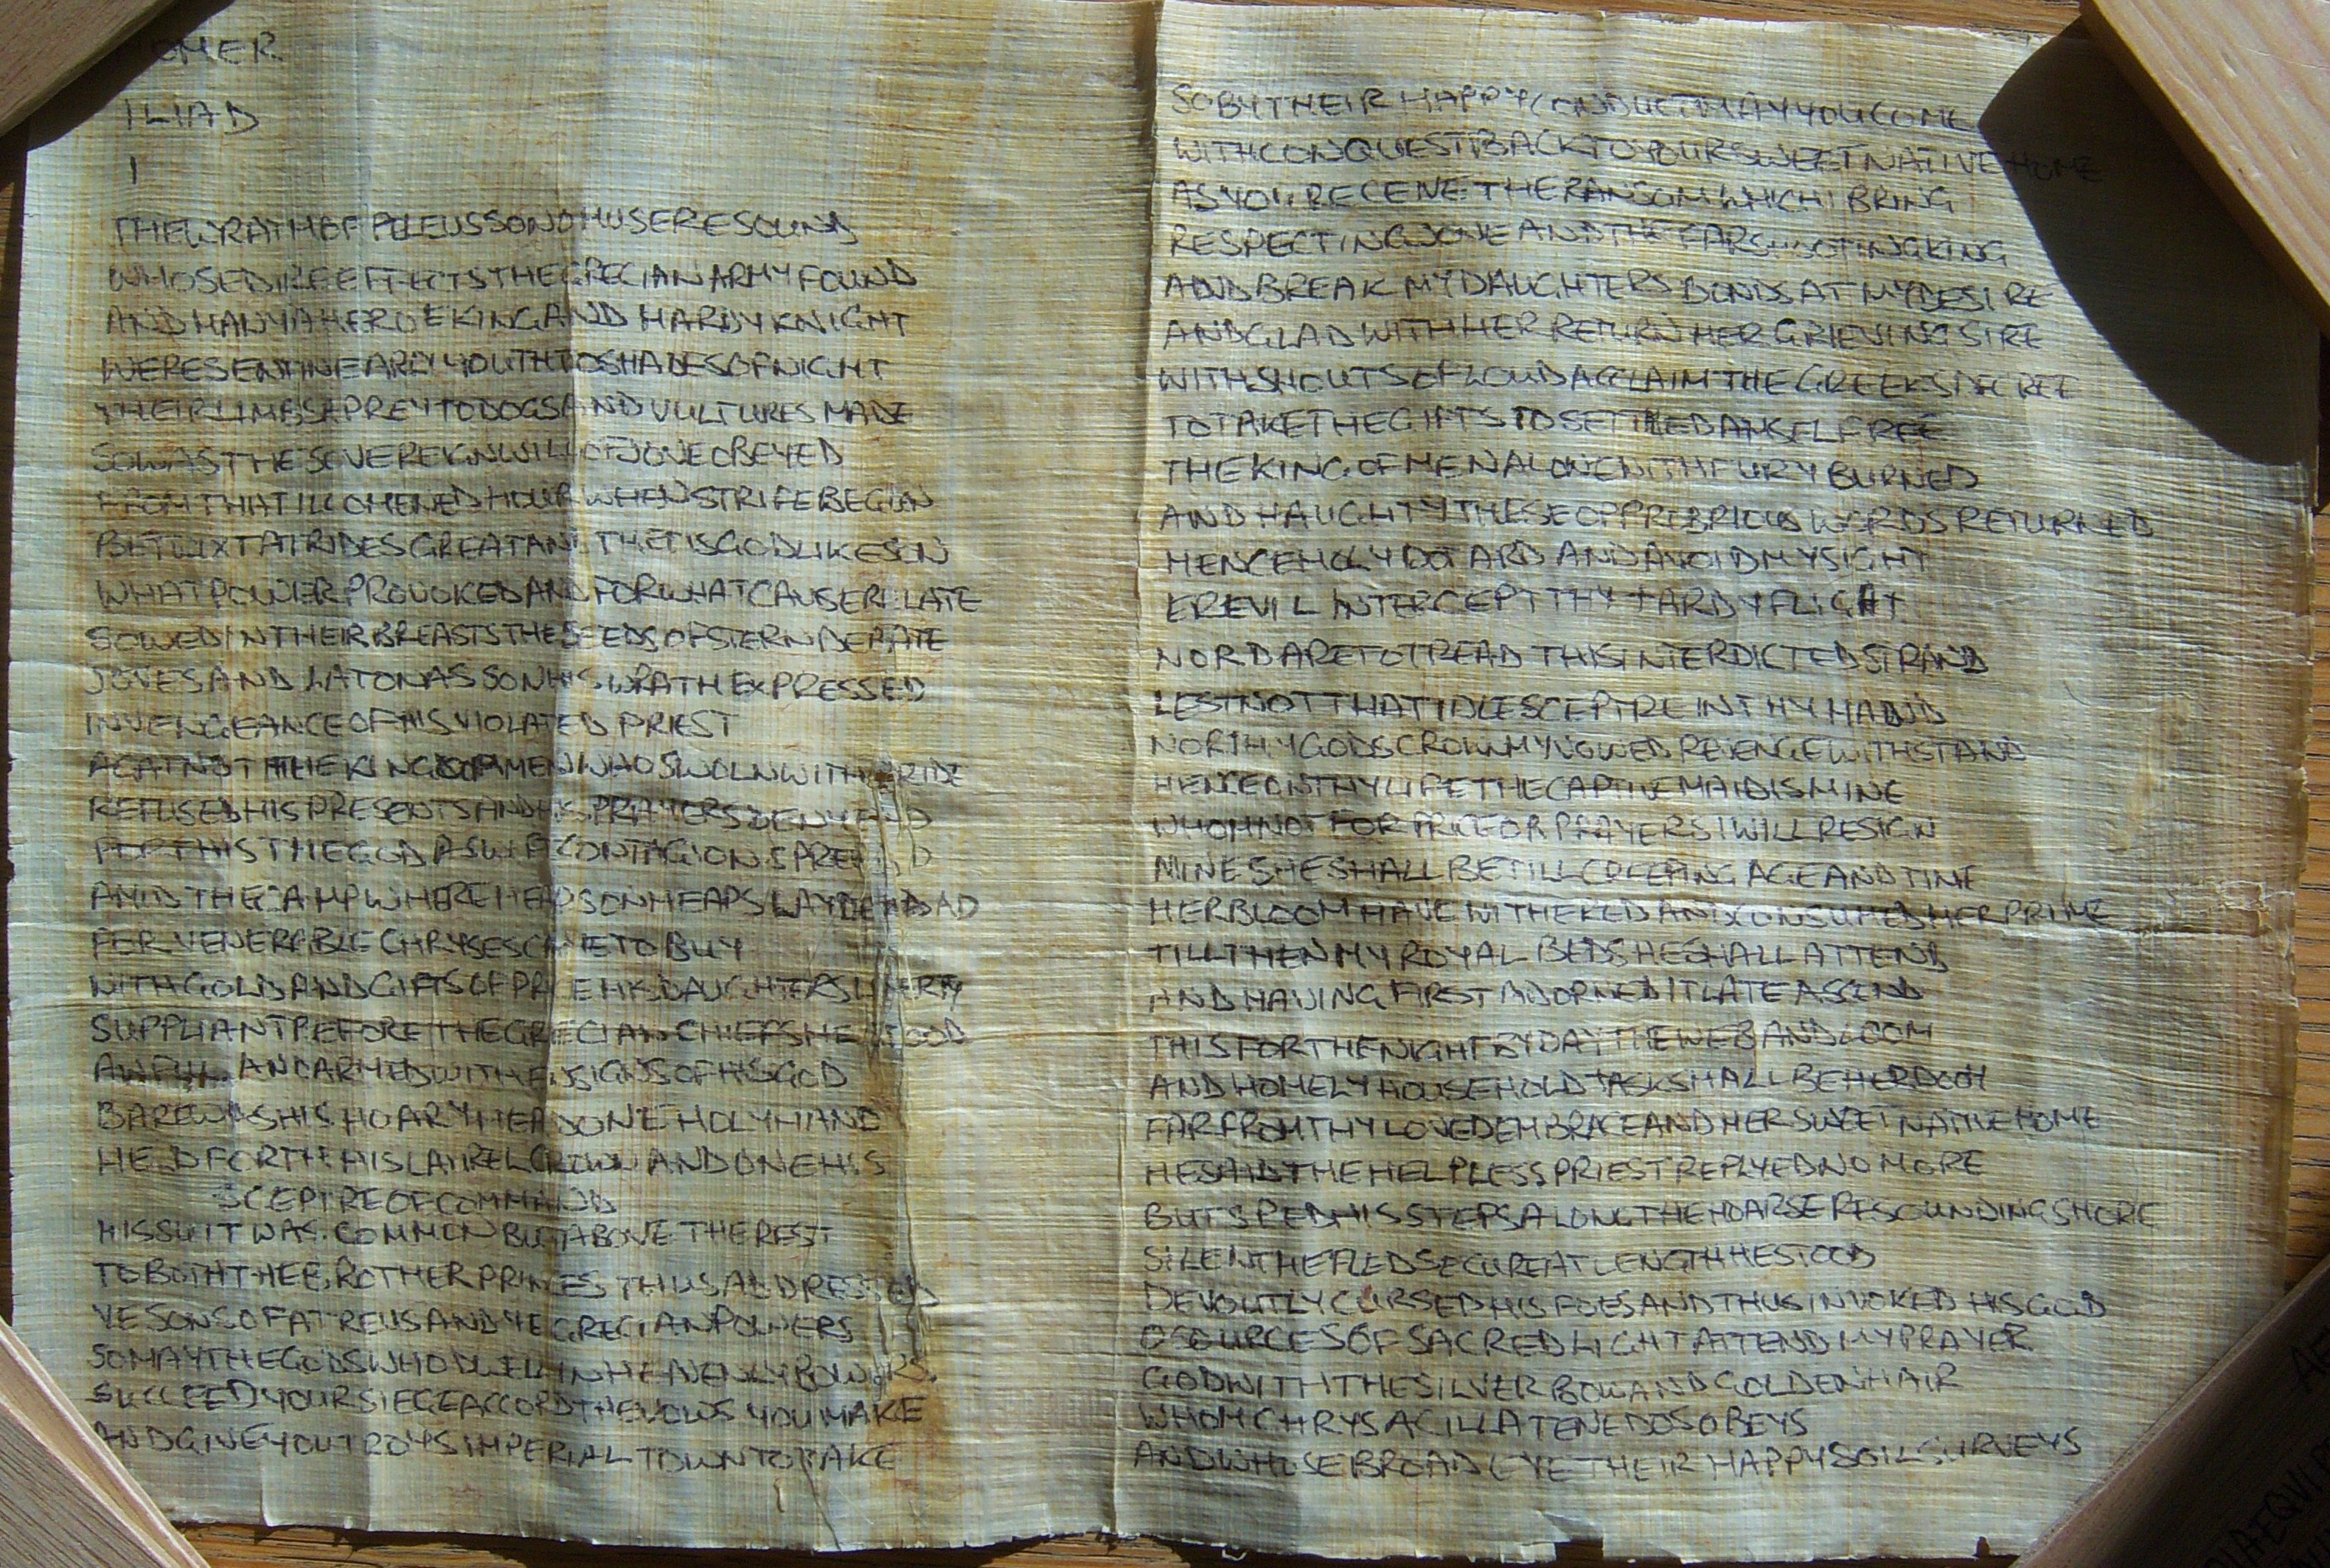 HOMER
ILIAD
I
THEWRATHOFPELEUSSONOMUSERESOUND
WHOSEDIREEFFECTSTHEGRECIANARMYFOUND
ANDMANYAHEROEKINGANDHARDYKNIGHT
WERESENTINEARLYYOUTHTOSHADESOFNIGHT
THEIRLIMBSAPREYTODOGSANDVULTURESMADE
SOWASTHESOVEREIGNWILLOFJOVEOBEYED
FROMTHATILLOMENEDHOURWHENSTRIFEBEGUN
BETWIXTATRIDESGREATANDTHETISGODLIKESON
WHATPOWERPROVOKEDANDFORWHATCAUSERELATE
SOWEDINTHEIRBREASTSTHESEEDSOFSTERNDEBATE
JOVESANDLATONASSONHISWRATHEXPRESSED
INVENGEANCEOFHISVIOLATEDPRIEST
AGAINSTTHEKINGOFMENWHOSWOLNWITHPRIDE
REFUSEDHISPRESENTSANDHISPRAYERSDENYED
FORTHISTHEGODASWIFTCONTAGIONSPREAD
AMIDTHECAMPWHEREHEAPSONHEAPSLAYDEAD
FERVENERABLECHRYSESCAMETOBUY
WITHGOLDANDGIFTSOFPRICEHISDAUGHTERSLIBERTY
SUPPLIANTBEFORETHEGRECIANCHIEFSHESTOOD
AWFULANDARMEDWITHENSIGNSOFHISGOD
BAREWASHISHOARYHEADONEHOLYHAND
HELDFORTHHISLAURELCROWNANDONEHIS
SCEPTREOFCOMMAND
HISSUITWASCOMMONBUTABOVETHEREST
TOBOTHTHEBROTHERPRINCESTHUSADDRESSED
YESONSOFATREUSANDYEGRECIANPOWERS
SOMAYTHEGODSWHODWELLINHEAVENLYBOWERS
SUCCEEDYOURSIEGEACCORDTHEVOWSYOUMAKE
ANDGIVEYOUTROYSIMPERIALTOWNTOTAKE
SOBYTHEIRHAPPYCONDUCTMAYYOUCOME
WITHCONQUESTBACKTOYOURSWEETNATIVEHOME
ASYOURECEIVETHERANSOMWHICHIBRING
RESPECTINGJOVEANDTHEFARSHOOTINGKING
ANDBREAKMYDAUGHTERSBONDSATMYDESIRE
ANDGLADWITHHERRETURNHERGRIEVINGSIRE
WITHSHOUTSOFLOUDACCLAIMTHEGREEKSDECREE
TOTAKETHEGIFTSTOSETTHEDAMSELFREE
THEKINGOFMENALONEWITHFURYBURNED
ANDHAUGHTYTHESEOPPROBRIOUSWORDSRETURNED
HENCEHOLYDOTARDANDAVOIDMYSIGHT
EREVILINTERCEPTTHYTARDYFLIGHT
NORDARETOTREADTHISINTERDICTEDSTRAND
LESTNOTTHATIDLESCEPTREINTHYHAND
NORTHYGODSCROWNMYVOWEDREVENGEWITHSTAND
HENCEONTHYLIFETHECAPTIVEMAIDISMINE
WHOMNOTFORPRICEORPRAYERSIWILLRESIGN
MINESHESHALLBETILLCREEPINGAGEANDTIME
HERBLOOMHAVEWITHEREDANDCONSUMEDHERPRIME
TILLTHENMYROYALBEDSHESHALLATTEND
ANDHAVINGFIRSTADORNEDITLATEASCEND
THISFORTHENIGHTBYDAYTHEWEBANDLOOM
ANDHOMELYHOUSEHOLDTASKSHALLBEHERDOOM
FARFROMTHYLOVEDEMBRACEANDHERSWEETNATIVEHOME
HESAIDTHEHELPLESSPRIESTREPLYEDNOMORE
BUTSPEDHISSTEPSALONGTHEHOARSERESOUNDINGSHORE
SILENTHEFLEDSECUREATLENGTHHESTOOD
DEVOUTLYCURSEDHISFOESANDTHUSINVOKEDHISGOD
OSOURCESOFSACREDLIGHTATTENDMYPRAYER
GODWITHTHESILVERBOWANDGOLDENHAIR
WHOMCHRYSACILLATENEDOSOBEYS
ANDWHOSEBROADEYETHEIRHAPPYSOILSURVEYS